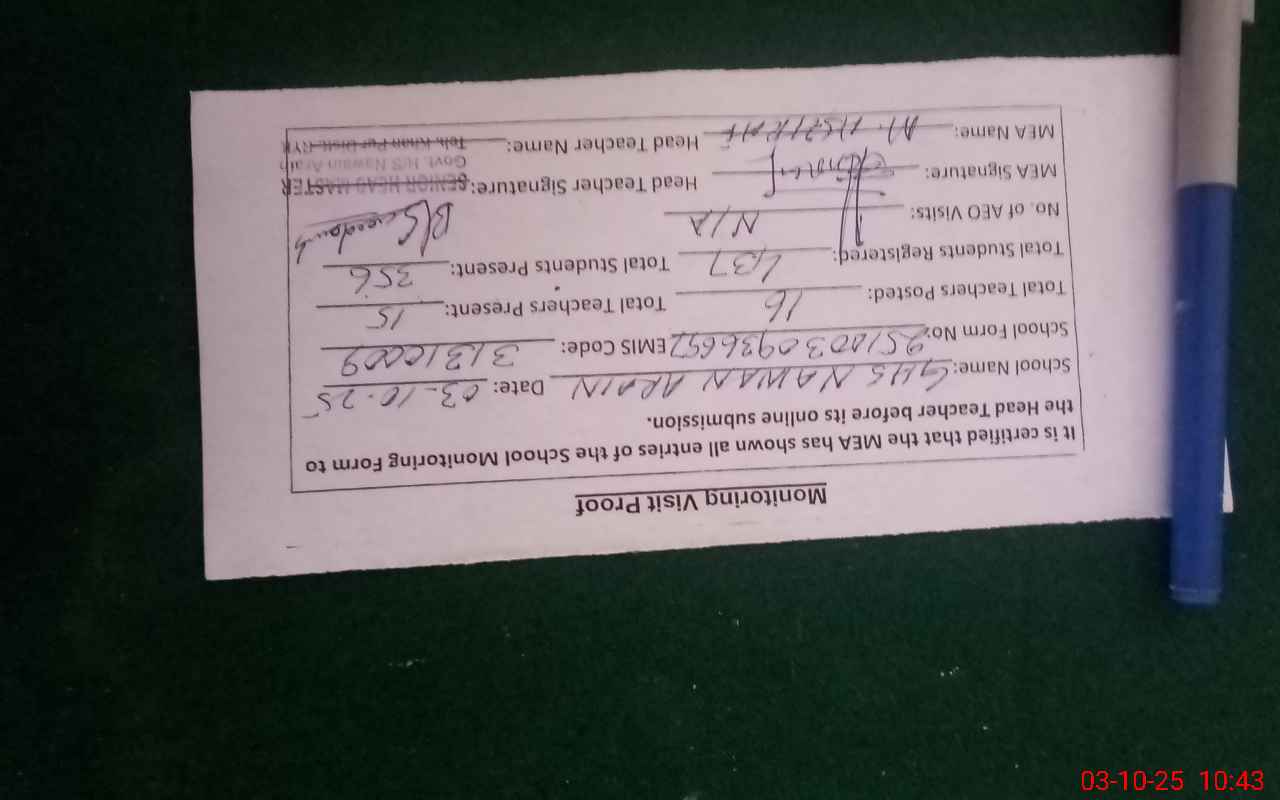 Monitoring Visit Proof
It is certified that the MEA has shown all entries of the School Monitoring Form to
the Head Teacher before its online submission.
School Name: GHS NAWAN ARAIN Date: 03-10-25
School Form No: EMIS Code: 31310009
Total Teachers Posted: 16 Total Teachers Present: 15
Total Students Registered: 437 Total Students Present: 356
No. of AEO Visits: N/A
MEA Signature: Head Teacher Signature: SENIOR HEAD MASTER
Govt. H/S Nawain Arain
MEA Name: Head Teacher Name: Teh. Khan Pur Distt. RYK
03-10-25 10:43